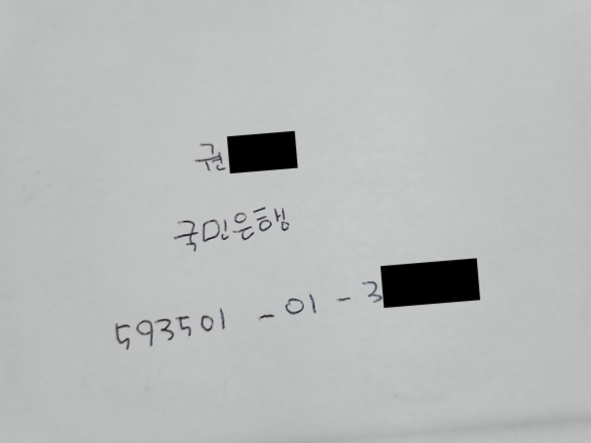 권
국민은행
593501 - 01 - 3